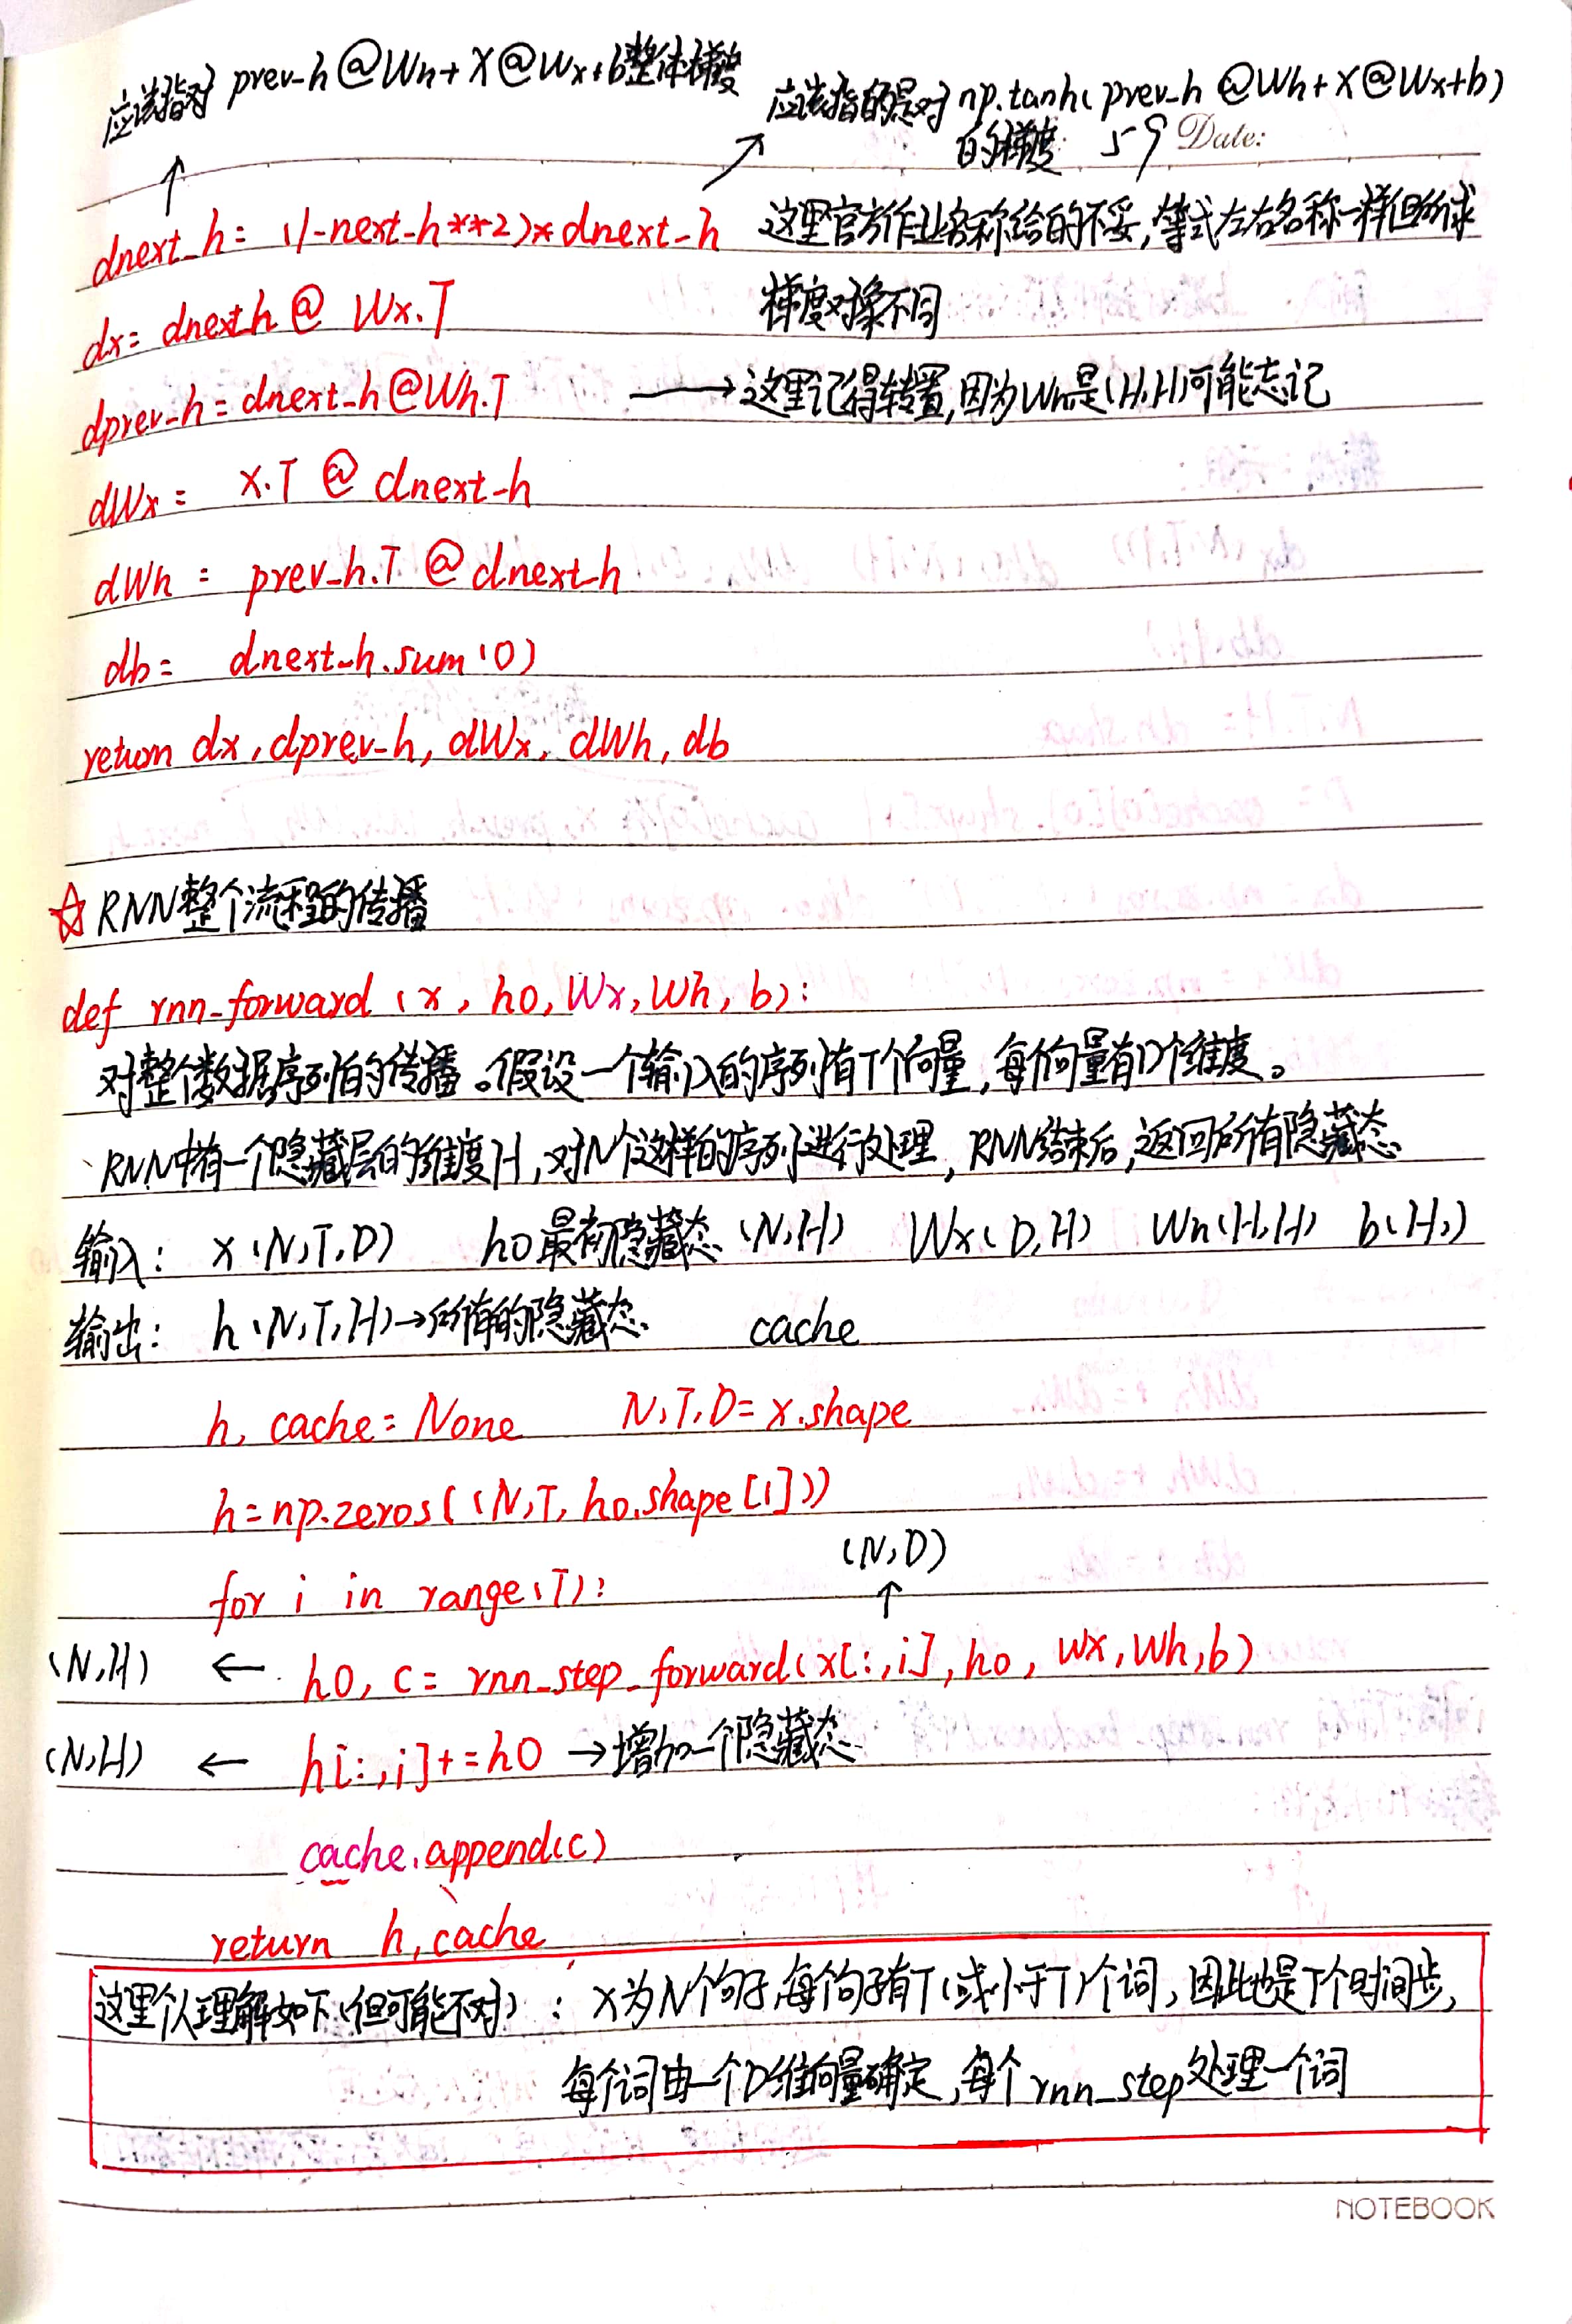 应该指对 prev-h @Wh + X@Wx+b整体梯度
应该指的是对 np.tanh(prev-h @Wh+X@Wx+b)
的梯度 59 Date:
dnext_h= (1-next-h**2)* dnext-h 这里官方作业名称给的不妥,等式左右名称一样但所求
梯度对象不同
dx= dnext-h @ Wx.T
dprev-h= dnext-h@Wh.T → 这里记得转置,因为Wh是(H,H)可能忘记
dWx = X.T @ dnext-h
dWh = prev-h.T @ dnext-h
db= dnext-h.sum(0)
return dx, dprev-h, dWx, dWh, db
☆ RNN整个流程的传播
def rnn-forward (x, h0, Wx, Wh, b):
对整个数据序列的传播。假设一个输入的序列有T个向量,每个向量有D个维度。
RNN中有一个隐藏层的维度H,对N个这样的序列进行处理,RNN结束后,返回所有隐藏态
输入: x (N,T,D) h0最初隐藏态 (N,H) Wx(D,H) Wh(H,H) b(H,)
输出: h(N,T,H)→所有的隐藏态 cache
h, cache= None N,T,D= x.shape
h=np.zeros((N,T, h0.shape[1]))
(N,D)
for i in range(T):
(N,H) ← h0, c= rnn_step_forward(x[:,i], h0, Wx, Wh, b)
(N,H) ← h[:,i]+=h0 →增加一个隐藏态
cache.append(c)
return h, cache
这里个人理解如下(但可能不对): X为N个句子,每个句子有T(或小于T)个词,因此也是T个时间步,
每个词由一个D维向量确定,每个rnn_step处理一个词
NOTEBOOK